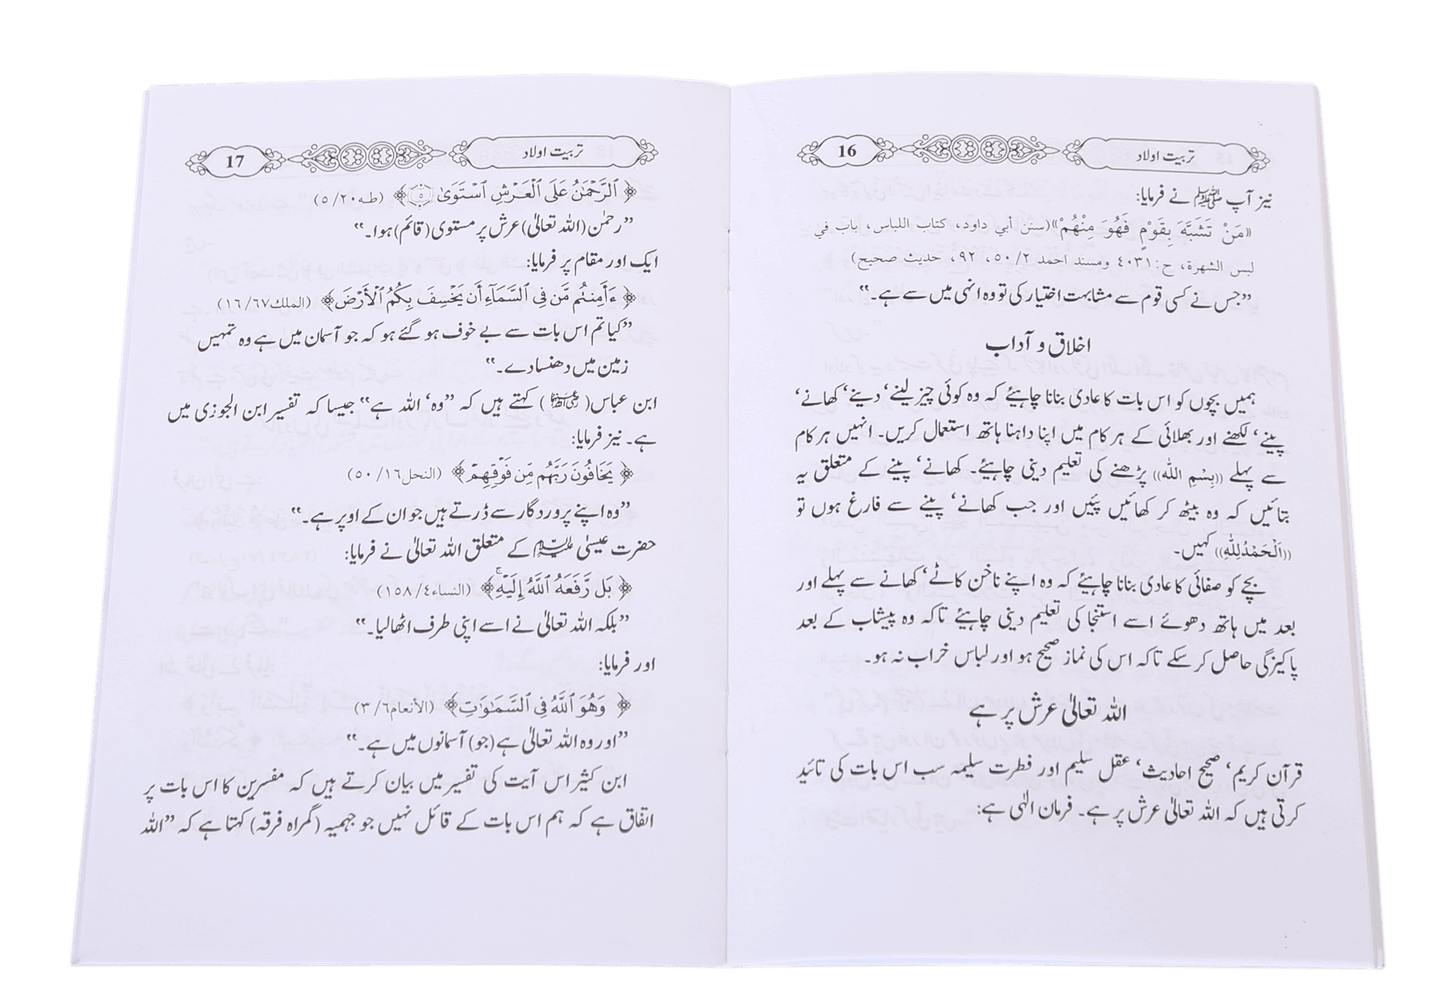 تربیت اولاد
16
نیز آپ ﷺ نے فرمایا:
«مَنْ تَشَبَّهَ بِقَوْمٍ فَهُوَ مِنْهُمْ»(سنن أبي داود، كتاب اللباس، باب في
لبس الشهرة، ح: ٤٠٣١ ومسند احمد ٢/ ٥٠، ٩٢، حدیث صحیح)
”جس نے کسی قوم سے مشابہت اختیار کی تو وہ انہی میں سے ہے۔“
اخلاق و آداب
ہمیں بچوں کو اس بات کا عادی بنانا چاہیئے کہ وہ کوئی چیز لینے‘ دینے‘ کھانے‘
پینے‘ لکھنے اور بھلائی کے ہر کام میں اپنا داہنا ہاتھ استعمال کریں۔ انہیں ہر کام
سے پہلے ((بِسْمِ اللّٰه)) پڑھنے کی تعلیم دینی چاہیئے۔ کھانے‘ پینے کے متعلق یہ
بتائیں کہ وہ بیٹھ کر کھائیں پئیں اور جب کھانے‘ پینے سے فارغ ہوں تو
((اَلْحَمْدُلِلّٰهِ)) کہیں۔
بچے کو صفائی کا عادی بنانا چاہیئے کہ وہ اپنے ناخن کاٹے‘ کھانے سے پہلے اور
بعد میں ہاتھ دھوئے اسے استنجا کی تعلیم دینی چاہیئے تاکہ وہ پیشاب کے بعد
پاکیزگی حاصل کر سکے تاکہ اس کی نماز صحیح ہو اور لباس خراب نہ ہو۔
اللہ تعالیٰ عرش پر ہے
قرآن کریم‘ صحیح احادیث‘ عقل سلیم اور فطرت سلیمہ سب اس بات کی تائید
کرتی ہیں کہ اللہ تعالیٰ عرش پر ہے۔ فرمان الٰہی ہے:
تربیت اولاد
17
﴿ ٱلرَّحْمَٰنُ عَلَى ٱلْعَرْشِ ٱسْتَوَىٰ ۝٥ ﴾ (طہ٢٠/ ٥)
”رحمٰن (اللہ تعالیٰ) عرش پر مستوی (قائم) ہوا۔“
ایک اور مقام پر فرمایا:
﴿ ءَأَمِنتُم مَّن فِي ٱلسَّمَآءِ أَن يَخْسِفَ بِكُمُ ٱلْأَرْضَ ﴾ (الملک٦٧/ ١٦)
”کیا تم اس بات سے بے خوف ہو گئے ہو کہ جو آسمان میں ہے وہ تمہیں
زمین میں دھنسا دے۔“
ابن عباس(رضی اللہ عنہما) کہتے ہیں کہ ”وہ‘ اللہ ہے“ جیسا کہ تفسیر ابن الجوزی میں
ہے۔ نیز فرمایا:
﴿ يَخَافُونَ رَبَّهُم مِّن فَوْقِهِمْ ﴾ (النحل١٦/ ٥٠)
”وہ اپنے پروردگار سے ڈرتے ہیں جو ان کے اوپر ہے۔“
حضرت عیسیٰ علیہ السلام کے متعلق اللہ تعالیٰ نے فرمایا:
﴿ بَل رَّفَعَهُ ٱللَّهُ إِلَيْهِ ۚ ﴾ (النساء٤/ ١٥٨)
”بلکہ اللہ تعالیٰ نے اسے اپنی طرف اٹھا لیا۔“
اور فرمایا:
﴿ وَهُوَ ٱللَّهُ فِي ٱلسَّمَٰوَٰتِ ﴾ (الأنعام٦/ ٣)
”اور وہ اللہ تعالیٰ ہے (جو) آسمانوں میں ہے۔“
ابن کثیر اس آیت کی تفسیر میں بیان کرتے ہیں کہ مفسرین کا اس بات پر
اتفاق ہے کہ ہم اس بات کے قائل نہیں جو جہمیہ (گمراہ فرقہ) کہتا ہے کہ ”اللہ